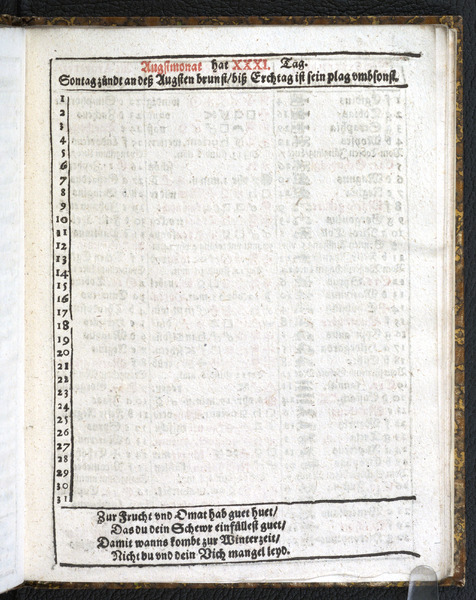 Augstmonat hat XXXI. Tag.
Sontag zündt an deß Augsten brunst/ biß Erchtag ist sein plag vmbsonst.
1
2
3
4
5
6
7
8
9
10
11
12
13
14
15
16
17
18
19
20
21
22
23
24
25
26
27
28
29
30
31
Zur Frucht vnd Omat hab guet huet/
Das du dein Schewr einfüllest guet/
Damit wanns kombt zur Winterzeit/
Nicht du vnd dein Vich mangel leyd.